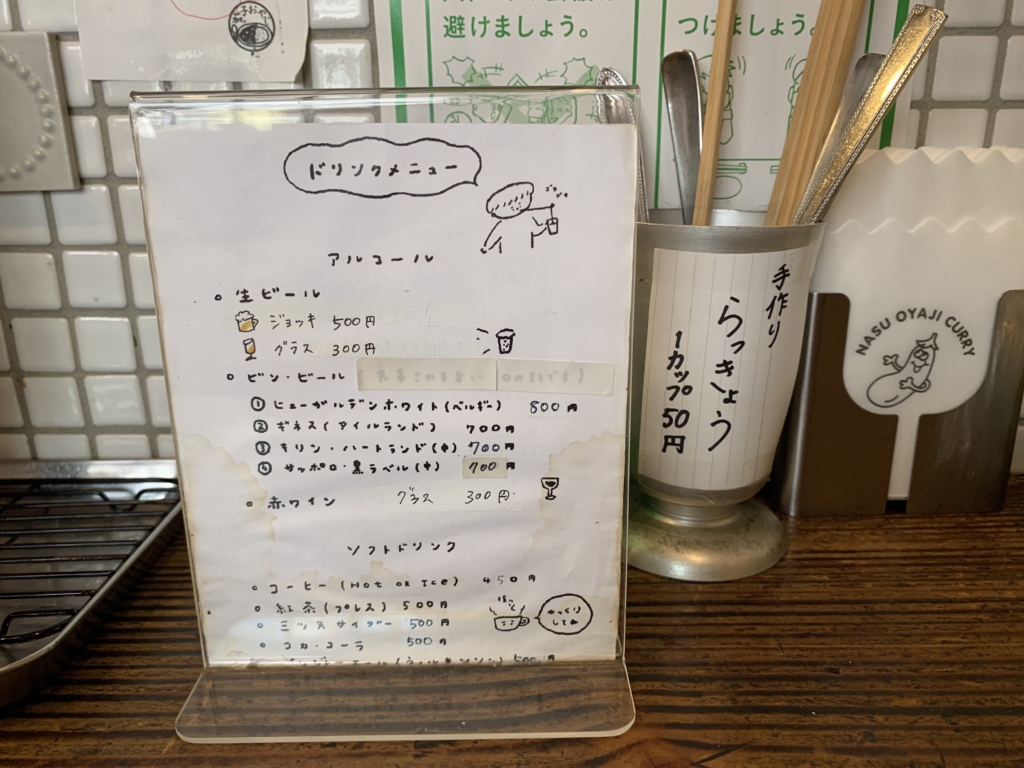 避けましょう。
つけましょう。
ドリンクメニュー
アルコール
生ビール
ジョッキ 500円
グラス 300円
ビン・ビール
① ヒューガルデンホワイト(ベルギー) 800円
② ギネス(アイルランド) 700円
③ キリン・ハートランド(中) 700円
④ サッポロ・黒ラベル(中) 700円
赤ワイン グラス 300円
ソフトドリンク
コーヒー (Hot or Ice) 450円
紅茶(プレス) 500円
三ツ矢サイダー 500円
コカ・コーラ 500円
ジンジャーエール(ウィルキンソン) 500円
ほっと
ゆっくり
してね
手作り
らっきょう
1カップ50円
NASU OYAJI CURRY